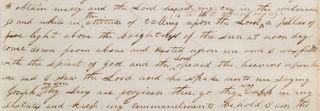 to obtain mercy and the Lord heard my cry in the wilderne
ss and while in the attitude of calling upon the Lord a piller of
fire light above the brightness of the sun at noon day
come down from above and rested upon me and I was filled
with the spirit of god and the Lord opened the heavens upon
me and I saw the Lord and he spake unto me saying
Joseph my son thy sins are forgiven thee. go thy way walk in my
statutes and keep my commandments behold I am the